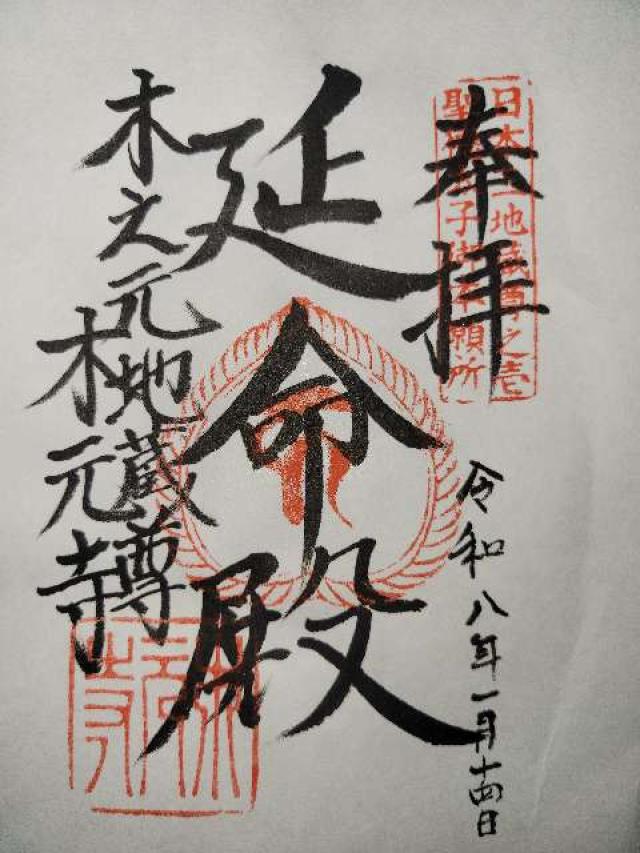 奉拝
日本 地蔵尊之壱
聖 子御 願所
令和八年一月十四日
延命殿
木之元地蔵尊
木元寺
木元寺